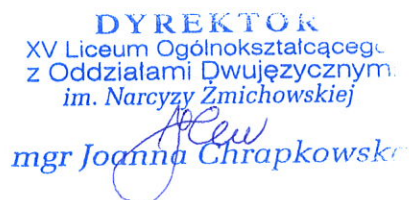 DYREKTOR
XV Liceum Ogólnokształcącego
z Oddziałami Dwujęzycznym
im. Narcyzy Żmichowskiej
mgr Joanna Chrapkowska